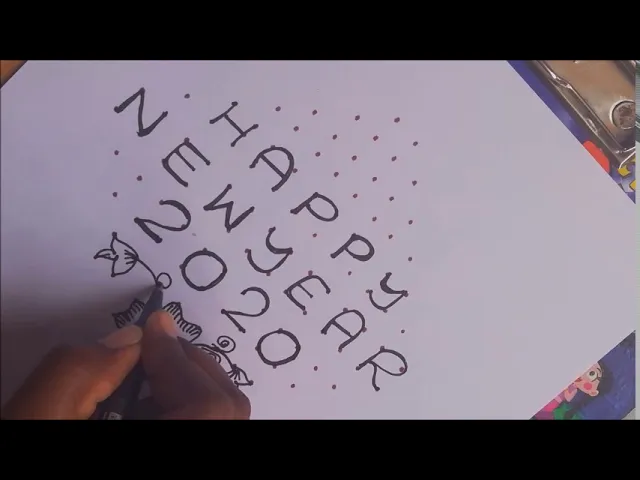 HAPPY
NEWYEAR
2020